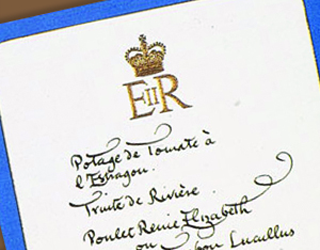 EIIR
Potage de Tomate à
l'Estragon.
Truite de Rivière.
Poulet Reine Elizabeth
ou Lucullus